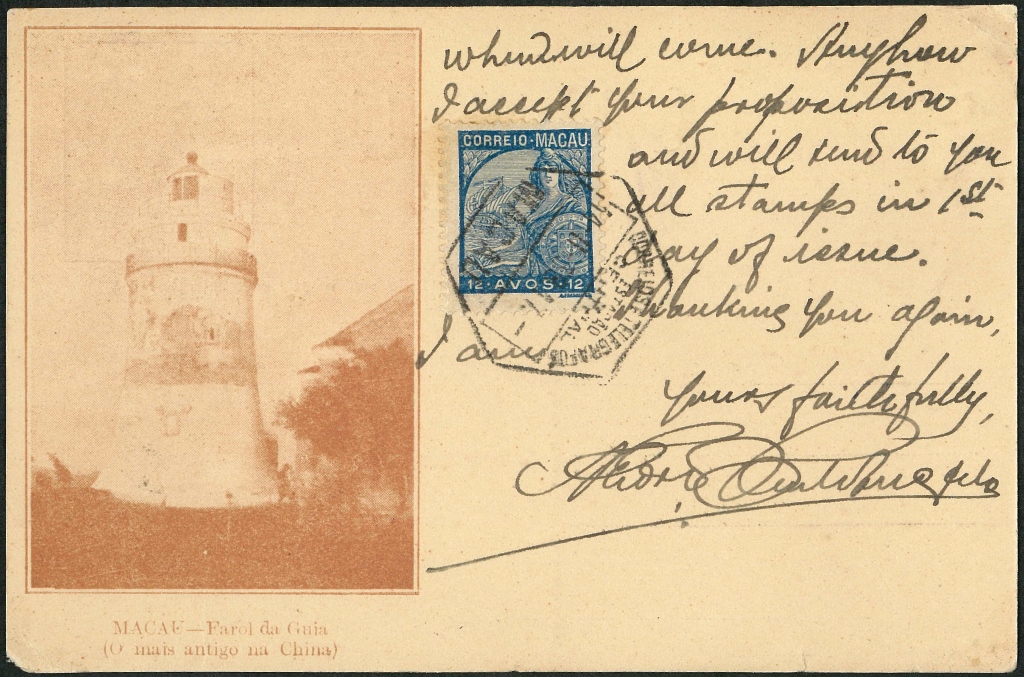 whenwill come. Anyhow
I accept your proposition
and will send to you
all stamps in 1st
day of issue.
Thanking you again,
I am
Yours faithfully,
CORREIO · MACAU
12 · AVOS · 12
CORREIOS E TELEGRAFOS
CENTRAL
MACAU—Farol da Guia
(O mais antigo na China)